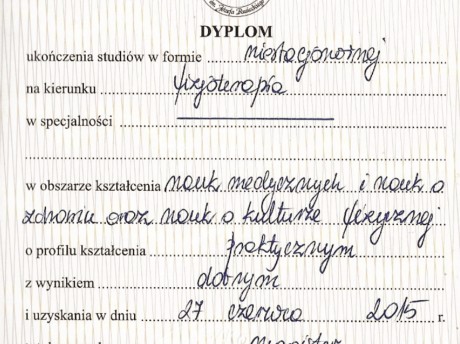 im. Józefa Piłsudskiego
DYPLOM
ukończenia studiów w formie niestacjonarnej
na kierunku fizjoterapia
w specjalności
w obszarze kształcenia nauk medycznych i nauk o
zdrowiu oraz nauk o kulturze fizycznej
o profilu kształcenia praktycznym
z wynikiem dobrym
i uzyskania w dniu 27 czerwca 2015 r.
magister